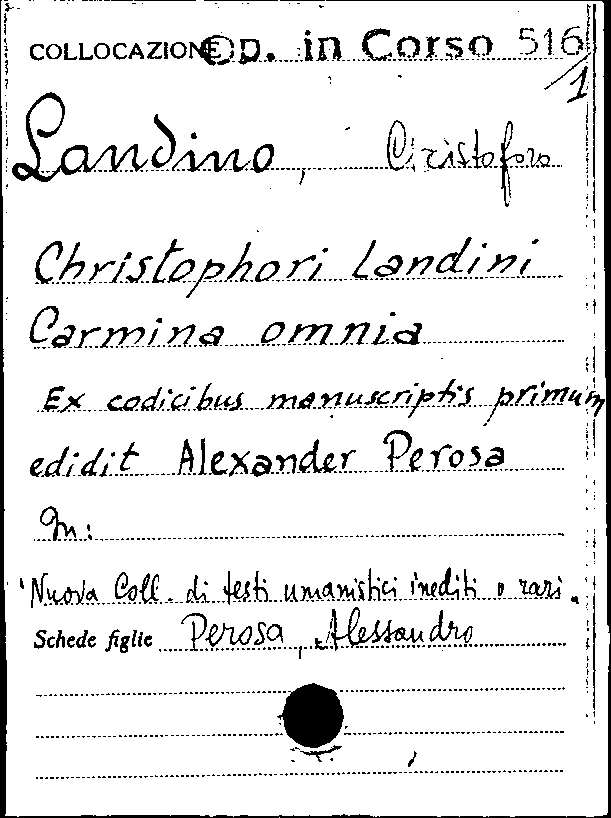 COLLOCAZIONE Op. in Corso 516/1
Landino, Cristoforo
Christophori Landini
Carmina omnia
Ex codicibus manuscriptis primum
edidit Alexander Perosa
In:
Nuova Coll. di testi umanistici inediti o rari.
Schede figlie Perosa, Alessandro